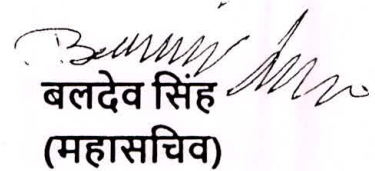 बलदेव सिंह
(महासचिव)